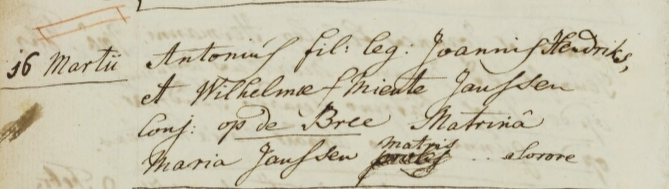 16 Martii Antonius fil: leg: Joannis Hendriks,
et Wilhelmae Miente Janssen
Conj: op de Bree Matrinâ
Maria Janssen matris .. sorore